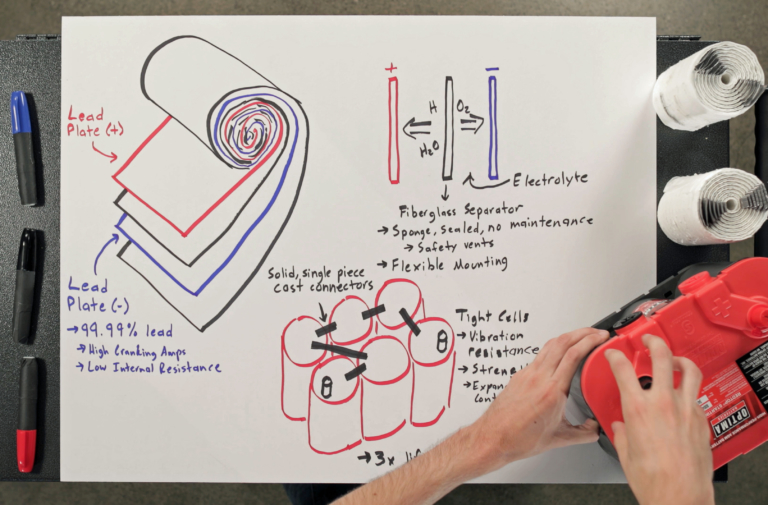 Lead
Plate (+)
Lead
Plate (-)
→ 99.99% lead
→ High Cranking Amps
→ Low Internal Resistance
+
−
H
O2
H2O
Electrolyte
Fiberglass Separator
→ Sponge, sealed, no maintenance
→ Safety vents
→ Flexible Mounting
Solid, single piece
cast connectors
θ
θ
Tight Cells
→ Vibration
resistance
→
→
→ 3x
OPTIMA